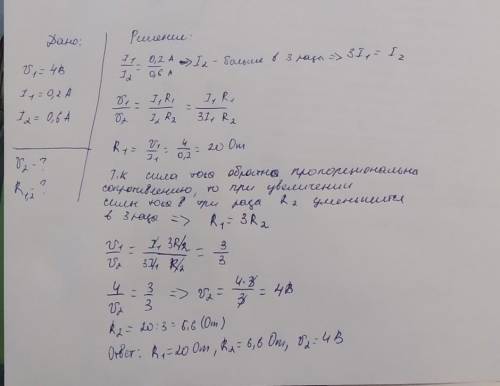 Дано:
υ₁ = 4В
I₁ = 0,2 А
I₂ = 0,6 А
υ₂ - ?
R₁,₂ - ?
Решение:
I₁/I₂ = 0,2 А/0,6 А => I₂ - больше в 3 раза => 3I₁ = I₂
υ₁/υ₂ = I₁ R₁/I₂ R₂ = I₁ R₁/3I₁ R₂
R₁ = υ₁/I₁ = 4/0,2 = 20 Ом
Т.к сила тока обратно пропорциональна
сопротивлению, то при увеличении
силы тока в три раза R₂ уменьшится
в 3 раза => R₁ = 3R₂
υ₁/υ₂ = I₁ 3R₂/3I₁ R₂ = 3/3
4/υ₂ = 3/3 => υ₂ = 4·3/3 = 4В
R₂ = 20 : 3 = 6,6 (Ом)
Ответ: R₁ = 20 Ом, R₂ = 6,6 Ом, υ₂ = 4 В